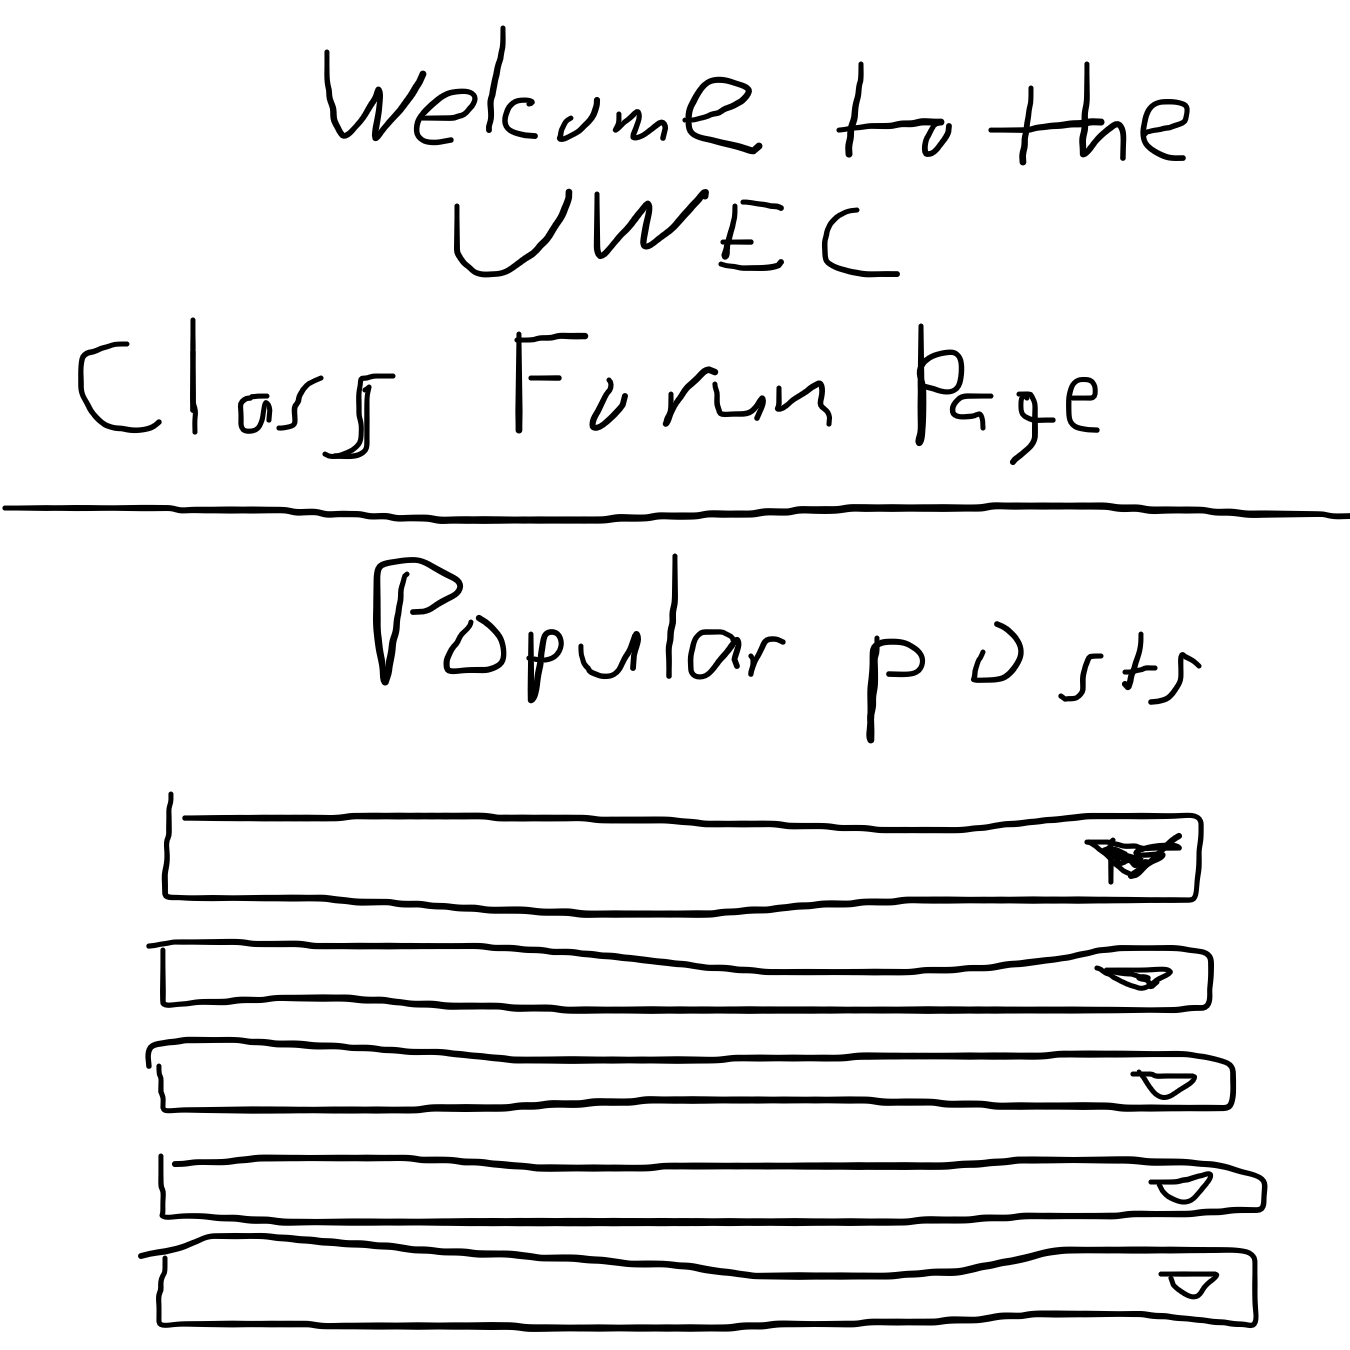 Welcome to the
UWEC
Class Forum Page
Popular posts